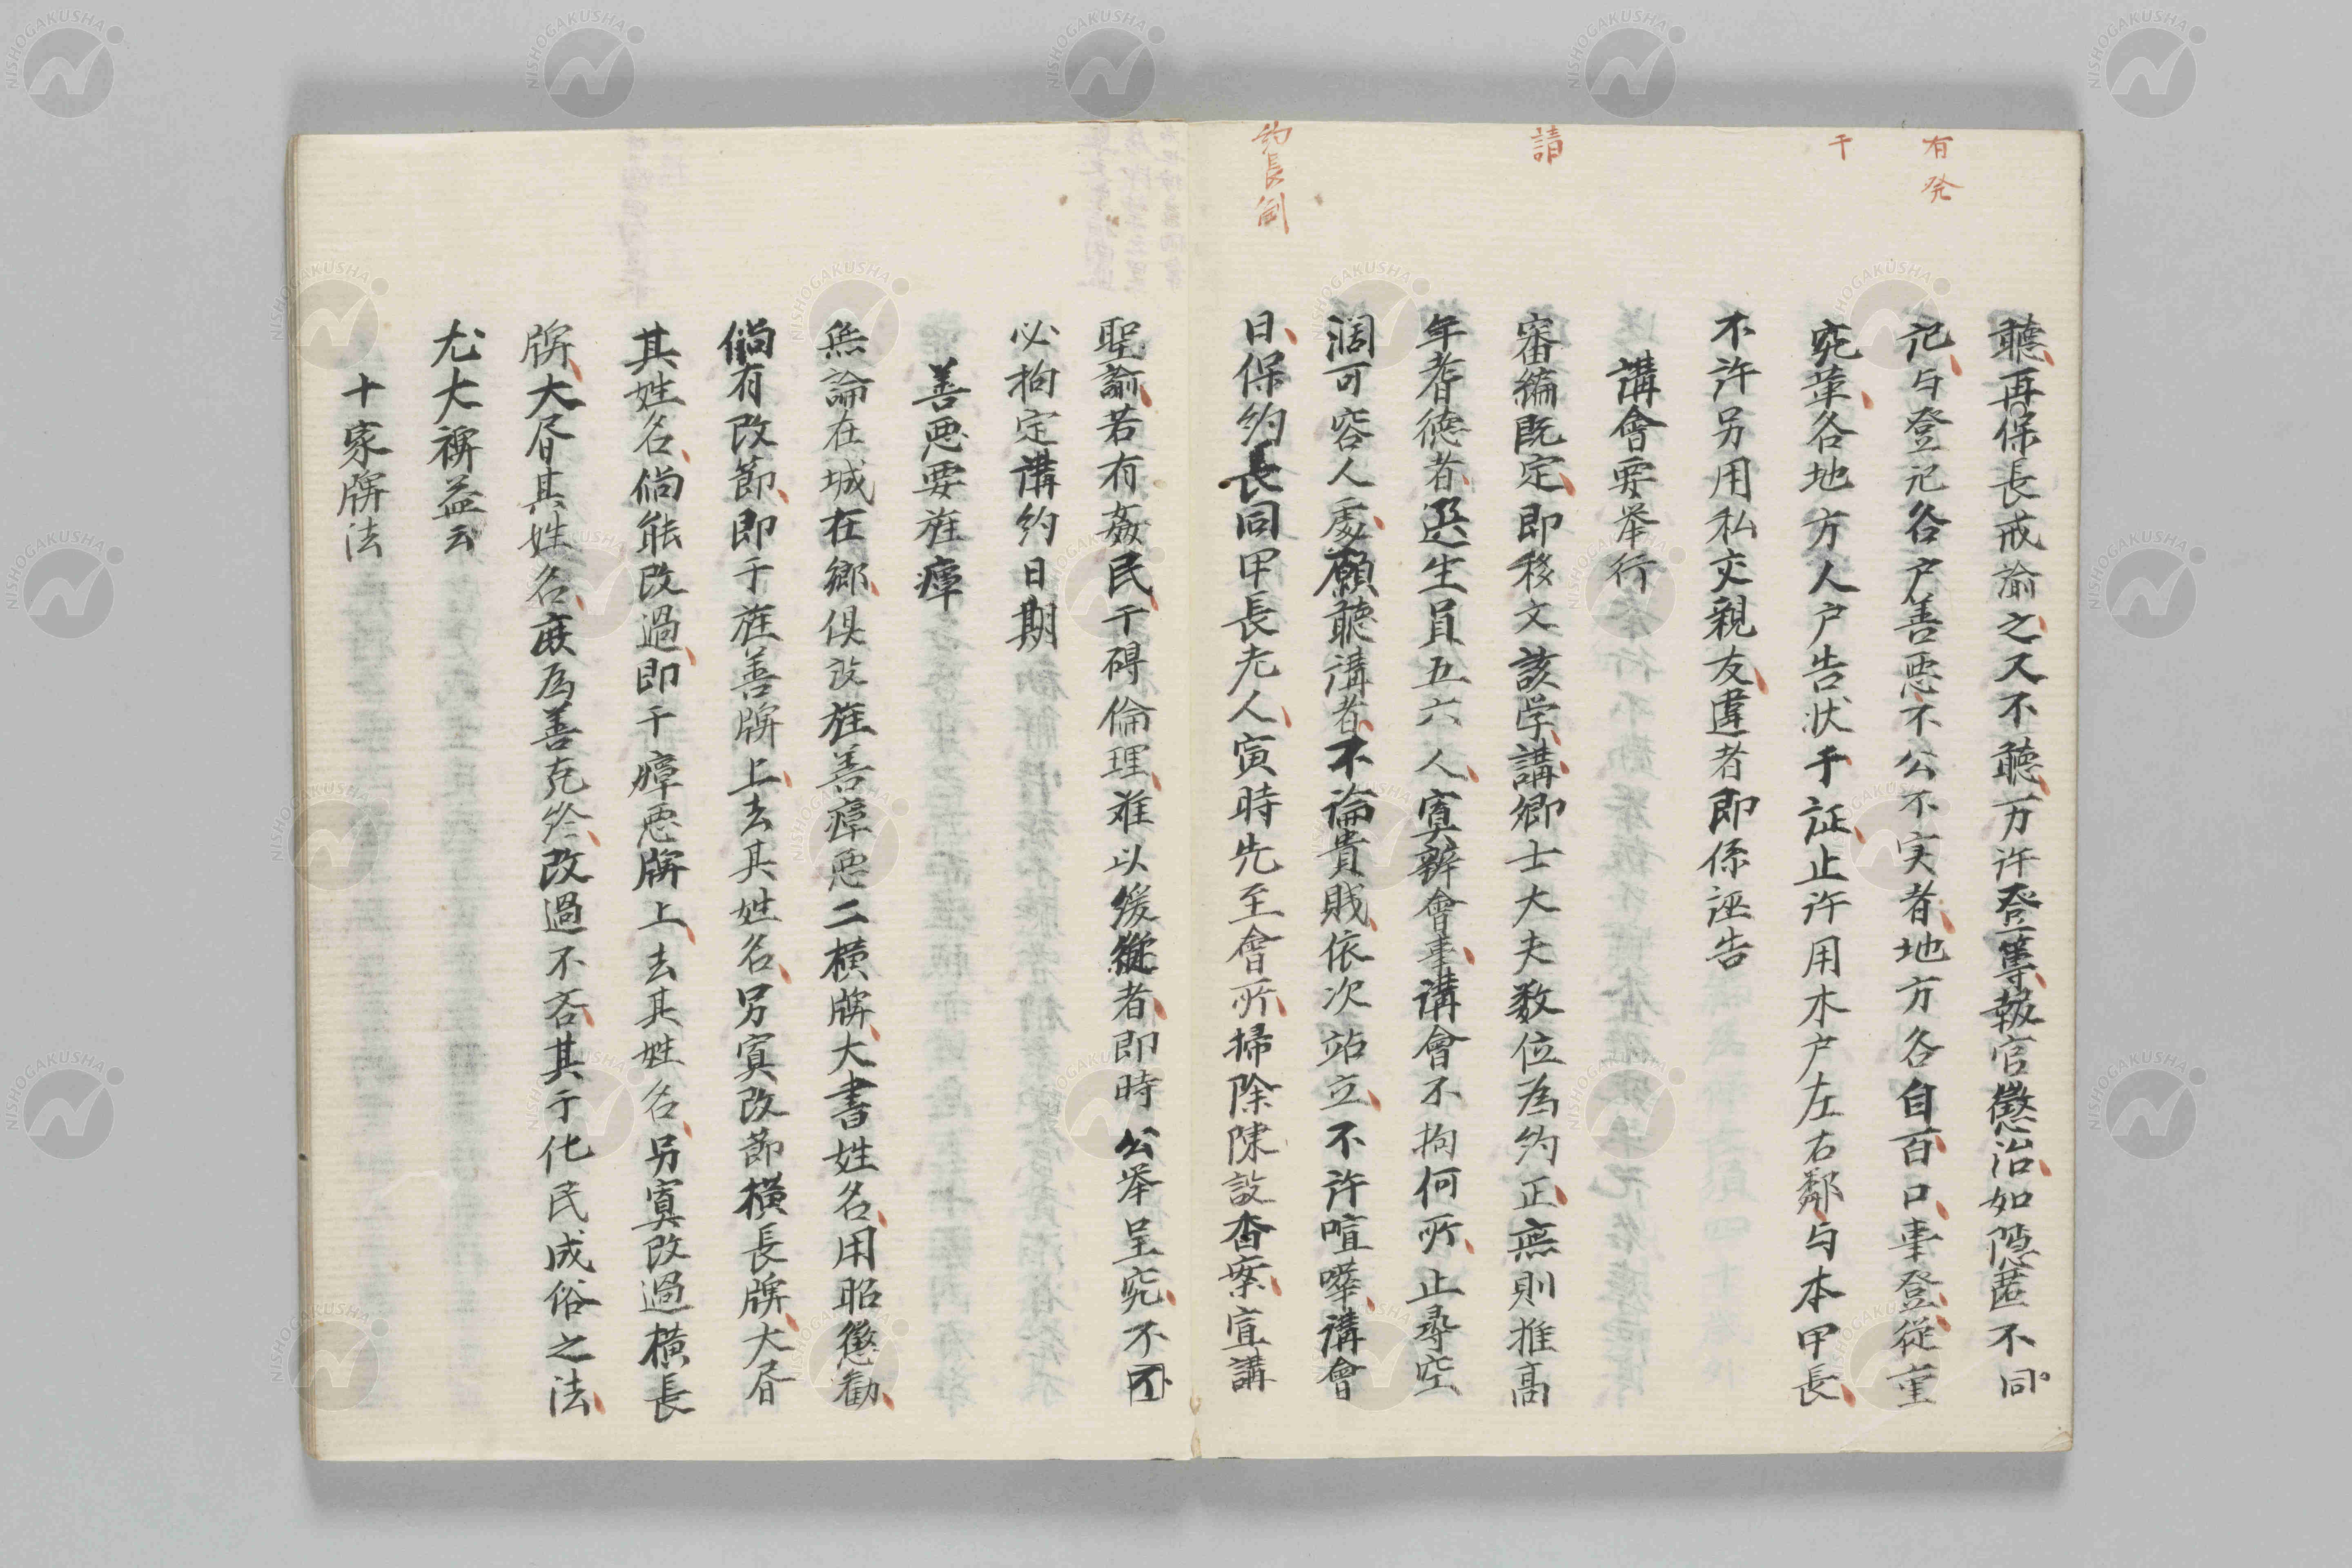 有
発
干
請
約長倒
聽再保長戒諭之又不聽方許登等報官懲治如隱匿不同
記与登記各户善悪不公不実者地方各自百口事登從重
究革各地方人户告状于証止許用木户左右鄰与本甲長
不許另用私交親友違者即係誣告
講會要举行
審編既定即移文該学講卿士大夫数位為約正無則推高
年耆徳者選生員五六人寘辦會事講會不拘何所止尋空
濶可容人處願聽溝者不論貴賤依次站立不許喧嘩講會
日保約長同甲長老人寅時先至會所掃除陳設香案宣講
聖諭若有姦民干碍倫理难以缓縱者即時公举呈究不
必拘定講約日期
善悪要旌瘴
無論在城在鄉俱改旌善瘴悪二横牌大書姓名用昭懲勧
倘有改節即于旌善牌上去其姓名另寘改節横長牌大昏
其姓名倘能改過即于瘴悪牌上去其姓名另寘改過横長
牌大昏其姓名庶為善克终改過不吝其于化民成俗之法
尤大裨益云
十家牌法
NISHOGAKUSHA